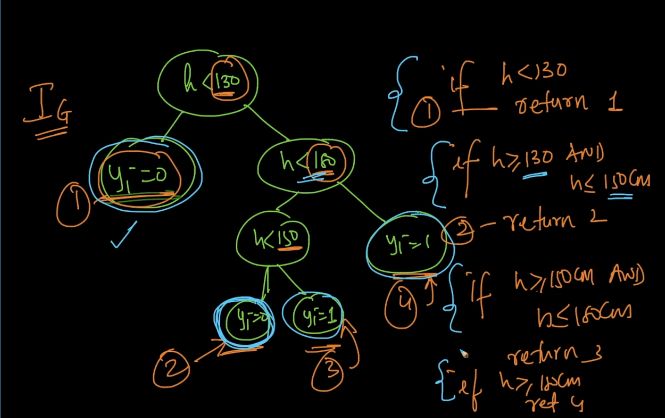 I_G
h < 130
y_i = 0
①
h < 180
h < 150
y_i = 1
④
y_i = 0
y_i = 1
②
③
① if h < 130
return 1
if h ≥ 130 AND
h ≤ 150cm
② - return 2
if h ≥ 150cm AND
h ≤ 180cms
return 3
if h ≥ 180cm
ret 4